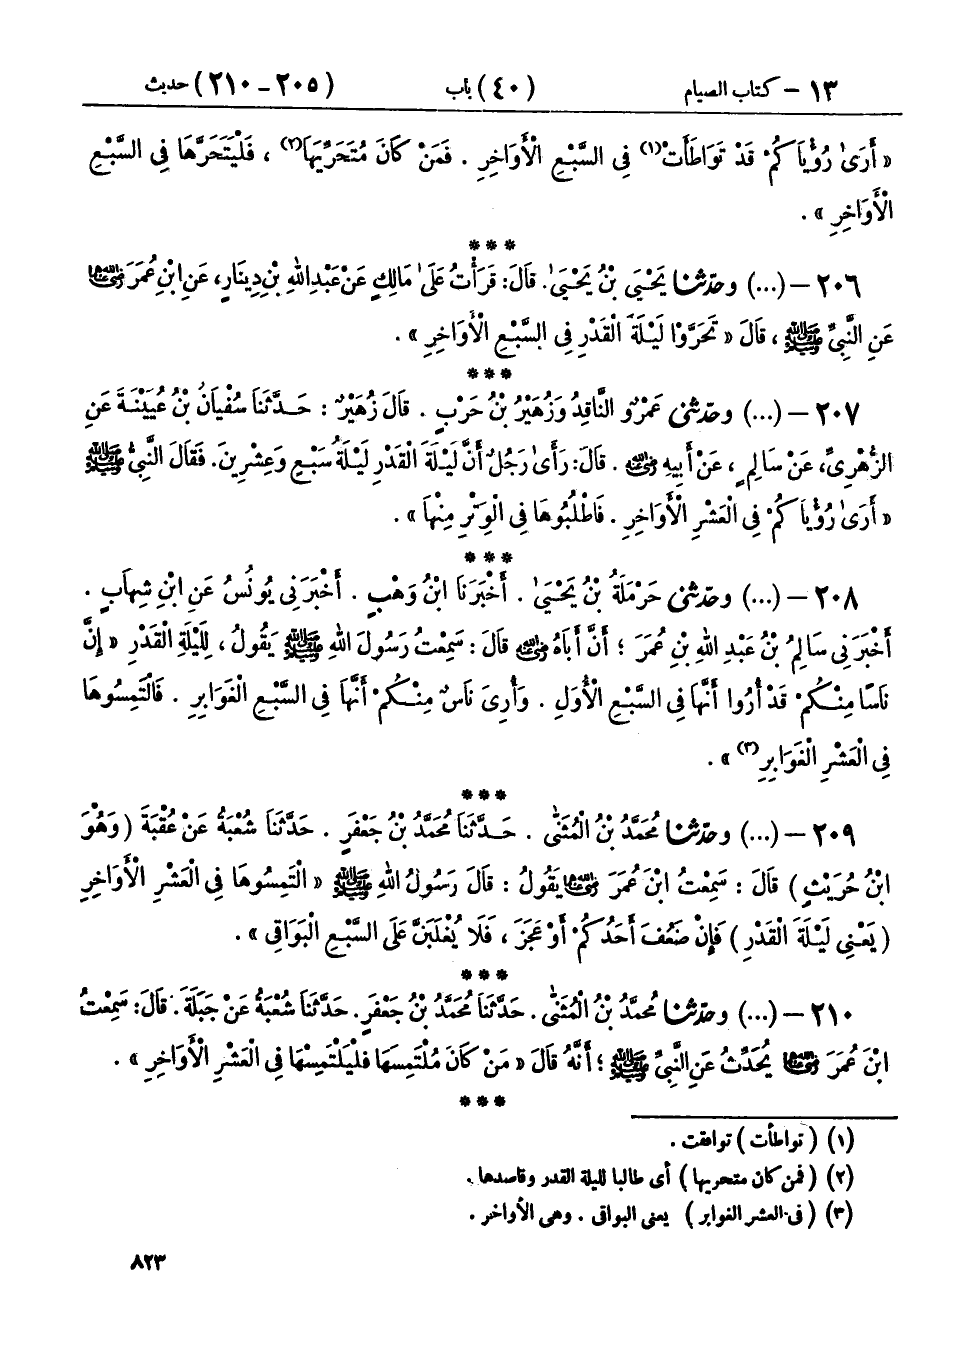 ١٣ – كتاب الصيام (٤٠) باب (٢٠٥ – ٢١٠) حديث
« أَرَىٰ رُؤْيَا كُمْ قَدْ تَوَاطَأَتْ(١) فِى السَّبْعِ الْأَوَاخِرِ . فَمَنْ كَانَ مُتَحَرِّيَهَا(٢) ، فَلْيَتَحَرَّهَا فِى السَّبْعِ
الْأَوَاخِرِ » .
***
٢٠٦ – (...) وحدّثنا يَحْيَى بْنُ يَحْيَىٰ. قَالَ: قَرَأْتُ عَلَىٰ مَالِكٍ عَنْ عَبْدِ اللهِ بْنِ دِينَارٍ، عَنِ ابْنِ عُمَرَ رضي الله عنهما
عَنِ النَّبِيِّ ﷺ ، قَالَ « تَحَرَّوْا لَيْلَةَ الْقَدْرِ فِى السَّبْعِ الْأَوَاخِرِ » .
***
٢٠٧ – (...) وحدّثنى عَمْرٌو النَّاقِدُ وَزُهَيْرُ بْنُ حَرْبٍ . قَالَ زُهَيْرٌ : حَدَّثَنَا سُفْيَانُ بْنُ عُيَيْنَةَ عَنِ
الزُّهْرِىِّ، عَنْ سَالِمٍ ، عَنْ أَبِيهِ رضي الله عنه . قَالَ: رَأَىٰ رَجُلٌ أَنَّ لَيْلَةَ الْقَدْرِ لَيْلَةُ سَبْعٍ وَعِشْرِينَ. فَقَالَ النَّبِيُّ ﷺ
« أَرَىٰ رُؤْيَا كُمْ فِى الْعَشْرِ الْأَوَاخِرِ . فَاطْلُبُوهَا فِى الْوِتْرِ مِنْهَا » .
***
٢٠٨ – (...) وحدّثنى حَرْمَلَةُ بْنُ يَحْيَىٰ . أَخْبَرَنَا ابْنُ وَهْبٍ . أَخْبَرَنِى يُونُسُ عَنِ ابْنِ شِهَابٍ .
أَخْبَرَنِى سَالِمُ بْنُ عَبْدِ اللهِ بْنِ عُمَرَ ؛ أَنَّ أَبَاهُ رضي الله عنه قَالَ : سَمِعْتُ رَسُولَ اللهِ ﷺ يَقُولُ ، لِلَيْلَةِ الْقَدْرِ « إِنَّ
نَاسًا مِنْكُمْ قَدْ أُرُوا أَنَّهَا فِى السَّبْعِ الْأُوَلِ . وَأُرِىَ نَاسٌ مِنْكُمْ أَنَّهَا فِى السَّبْعِ الْغَوَابِرِ . فَالْتَمِسُوهَا
فِى الْعَشْرِ الْغَوَابِرِ(٣) » .
***
٢٠٩ – (...) وحدّثنا مُحَمَّدُ بْنُ الْمُثَنَّىٰ . حَدَّثَنَا مُحَمَّدُ بْنُ جَعْفَرٍ . حَدَّثَنَا شُعْبَةُ عَنْ عُقْبَةَ ( وَهُوَ
ابْنُ حُرَيْثٍ ) قَالَ : سَمِعْتُ ابْنَ عُمَرَ رضي الله عنهما يَقُولُ : قَالَ رَسُولُ اللهِ ﷺ « الْتَمِسُوهَا فِى الْعَشْرِ الْأَوَاخِرِ
( يَعْنِى لَيْلَةَ الْقَدْرِ ) فَإِنْ ضَعُفَ أَحَدُكُمْ أَوْ عَجَزَ ، فَلَا يُغْلَبَنَّ عَلَى السَّبْعِ الْبَوَاقِى » .
***
٢١٠ – (...) وحدّثنا مُحَمَّدُ بْنُ الْمُثَنَّىٰ . حَدَّثَنَا مُحَمَّدُ بْنُ جَعْفَرٍ. حَدَّثَنَا شُعْبَةُ عَنْ جَبَلَةَ. قَالَ: سَمِعْتُ
ابْنَ عُمَرَ رضي الله عنهما يُحَدِّثُ عَنِ النَّبِيِّ ﷺ ؛ أَنَّهُ قَالَ « مَنْ كَانَ مُلْتَمِسَهَا فَلْيَلْتَمِسْهَا فِى الْعَشْرِ الْأَوَاخِرِ » .
***
(١) ( تواطأت ) توافقت .
(٢) ( فمن كان متحريها ) أى طالبا لليلة القدر وقاصدها .
(٣) ( فى العشر الغوابر ) يعنى البواقى . وهى الأواخر .
٨٢٣